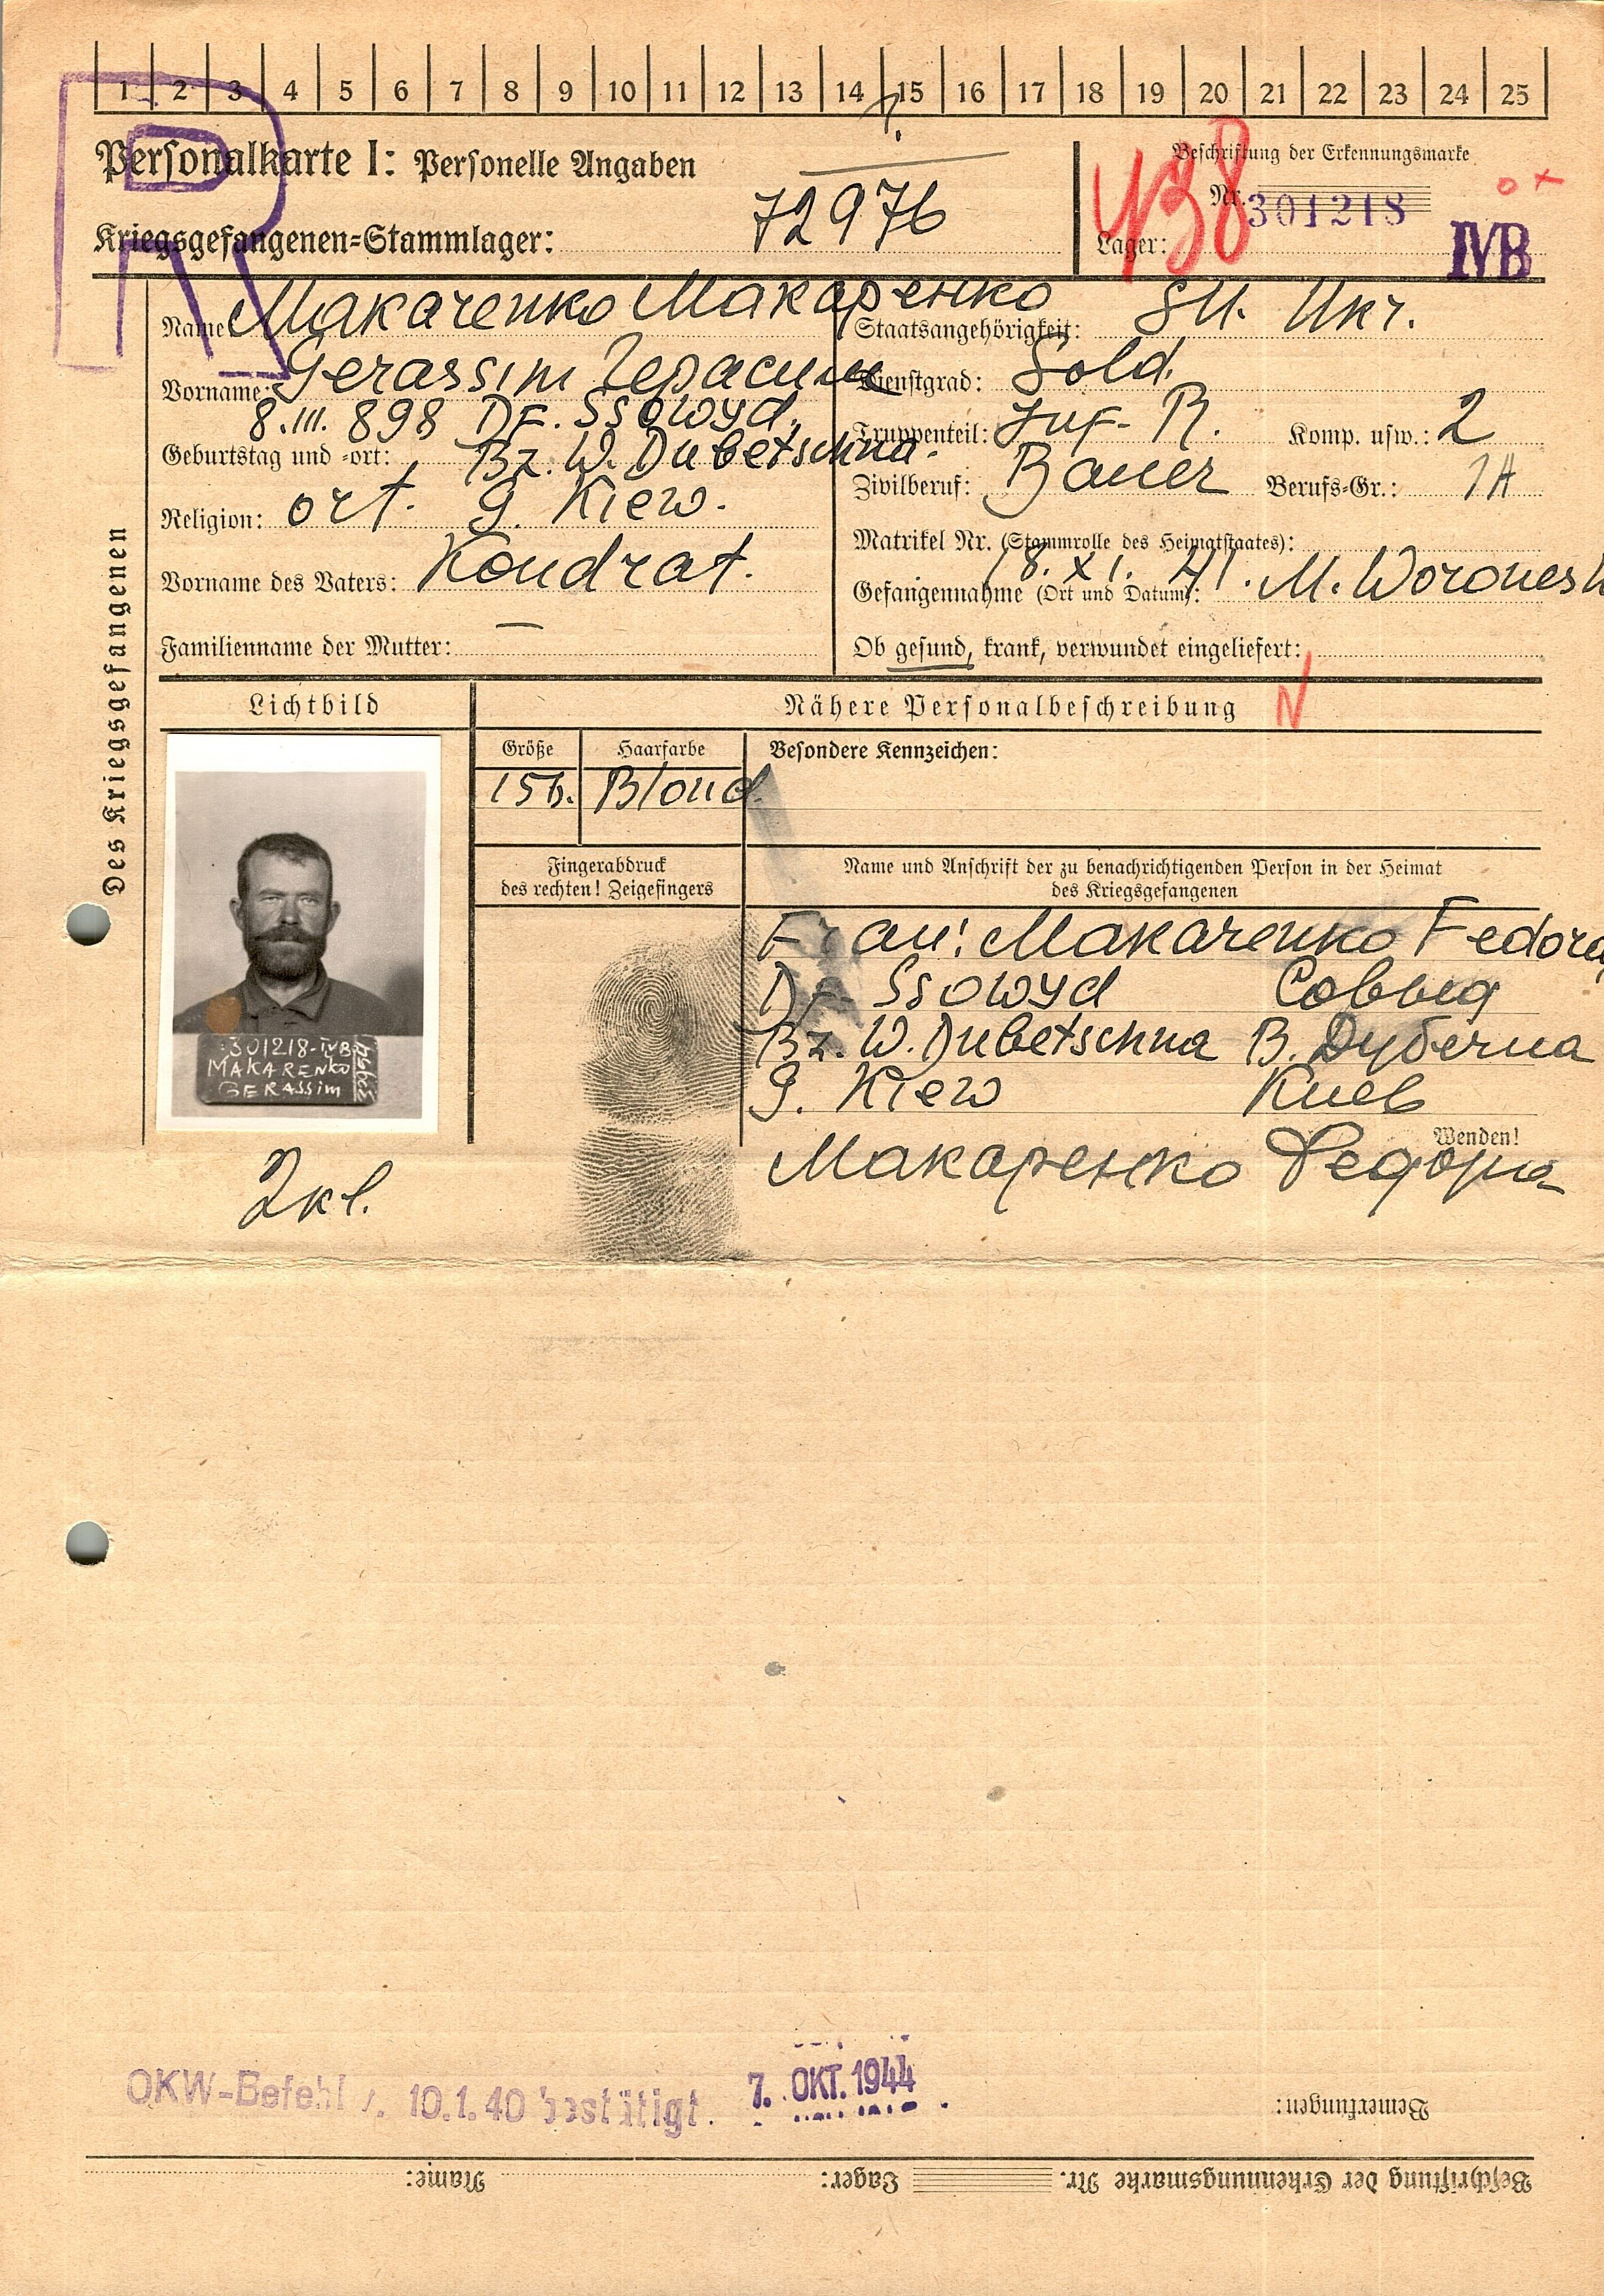 1 2 3 4 5 6 7 8 9 10 11 12 13 14 15 16 17 18 19 20 21 22 23 24 25
R
Personalkarte I: Personelle Angaben
Beschriftung der Erkennungsmarke
Nr. 301218
Kriegsgefangenen=Stammlager: 72976
438
Lager: IVB
Des Kriegsgefangenen
Name: Makarenko Макаренко
Vorname: Gerassim Герасим
8.III.898 DF. Ssowyd,
Geburtstag und =ort: Bz. W. Dubetschna.
Religion: ort. G. Kiew.
Vorname des Vaters: Kondrat.
Familienname der Mutter: —
Staatsangehörigkeit: SU. Ukr.
Dienstgrad: Sold.
Truppenteil: Inf. R. Komp. usw.: 2
Zivilberuf: Bauer Berufs=Gr.: 1A
Matrikel Nr. (Stammrolle des Heimatstaates):
Gefangennahme (Ort und Datum): 18. XI. 41. M. Woronesh
Ob gesund, krank, verwundet eingeliefert:
Lichtbild
Nähere Personalbeschreibung N
Größe Haarfarbe Besondere Kennzeichen:
156. Blond.
Fingerabdruck
des rechten! Zeigefingers
Name und Anschrift der zu benachrichtigenden Person in der Heimat
des Kriegsgefangenen
Frau: Makarenko Fedora
DF. Ssowyd Соввыд
Bz. W. Dubetschna В. Дубечна
G. Kiew Киев
Wenden!
Макаренко Федора
301218-IVB
MAKARENKO
GERASSIM
2 kl.
OKW-Befehl v. 10.1.40 bestätigt. 7. OKT. 1944
Bemerkungen:
Beschriftung der Erkennungsmarke Nr. Lager: Name: